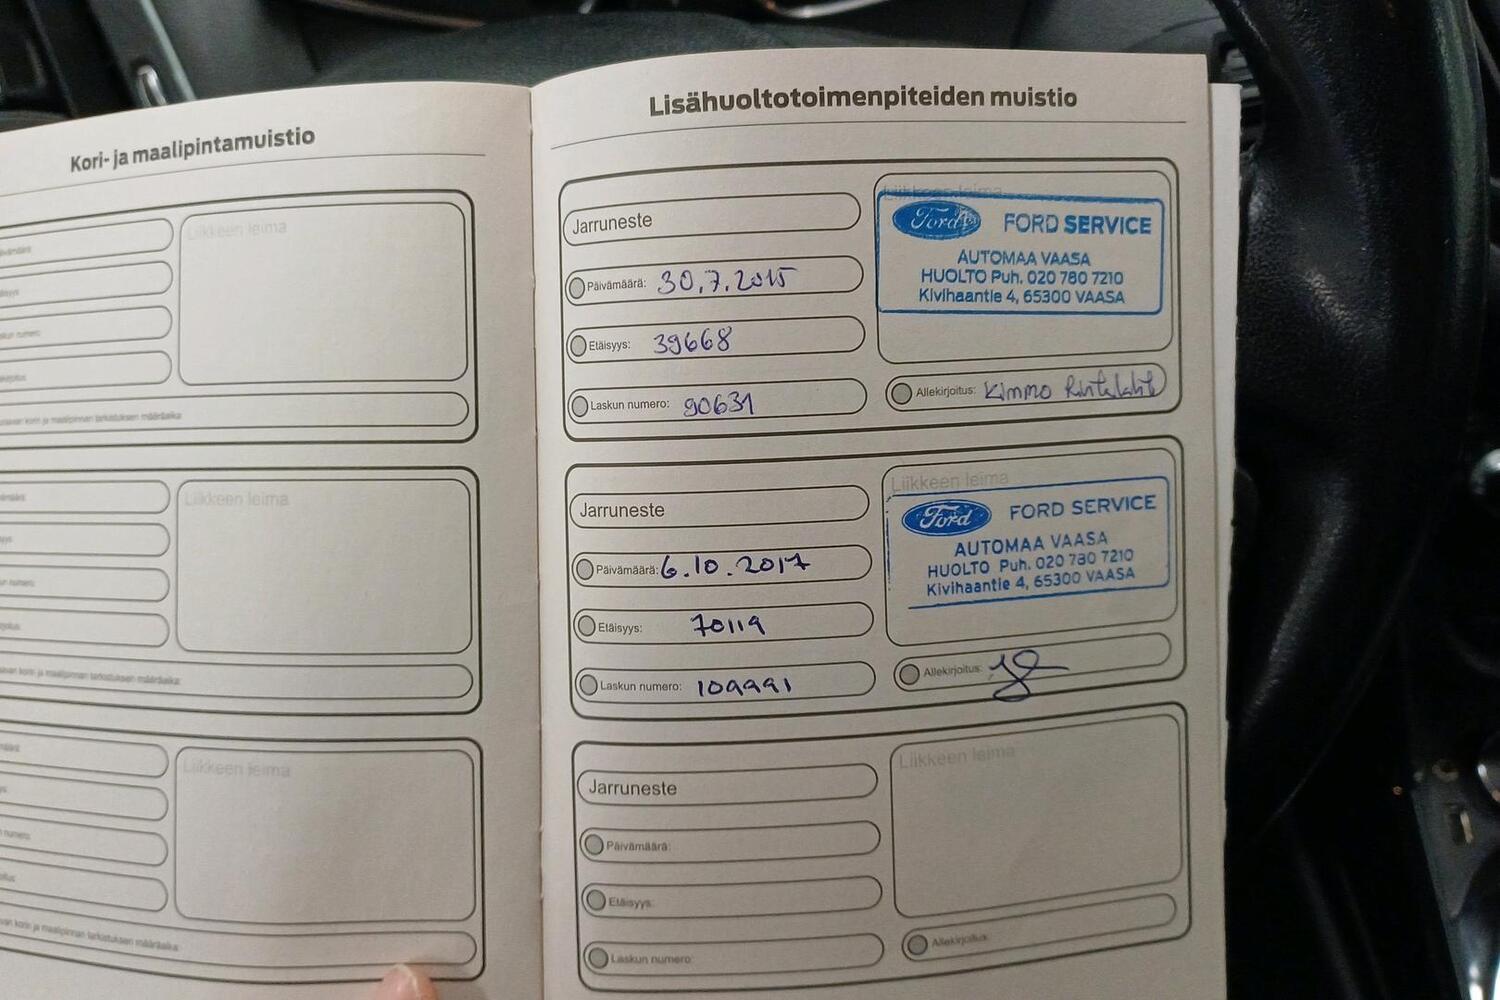 Kori- ja maalipintamuistio
Liikkeen leima
kori ja maalipinnan tarkistuksen määräaika:
Liikkeen leima
kori ja maalipinnan tarkistuksen määräaika:
Liikkeen leima
kori ja maalipinnan tarkistuksen määräaika:
Lisähuoltotoimenpiteiden muistio
Jarruneste
Päivämäärä: 30.7.2015
Etäisyys: 39668
Laskun numero: 90631
Liikkeen leima
Ford FORD SERVICE
AUTOMAA VAASA
HUOLTO Puh. 020 780 7210
Kivihaantie 4, 65300 VAASA
Allekirjoitus: Kimmo
Jarruneste
Päivämäärä: 6.10.2017
Etäisyys: 70119
Laskun numero: 109991
Liikkeen leima
Ford FORD SERVICE
AUTOMAA VAASA
HUOLTO Puh. 020 780 7210
Kivihaantie 4, 65300 VAASA
Allekirjoitus:
Jarruneste
Päivämäärä:
Etäisyys:
Laskun numero:
Liikkeen leima
Allekirjoitus: